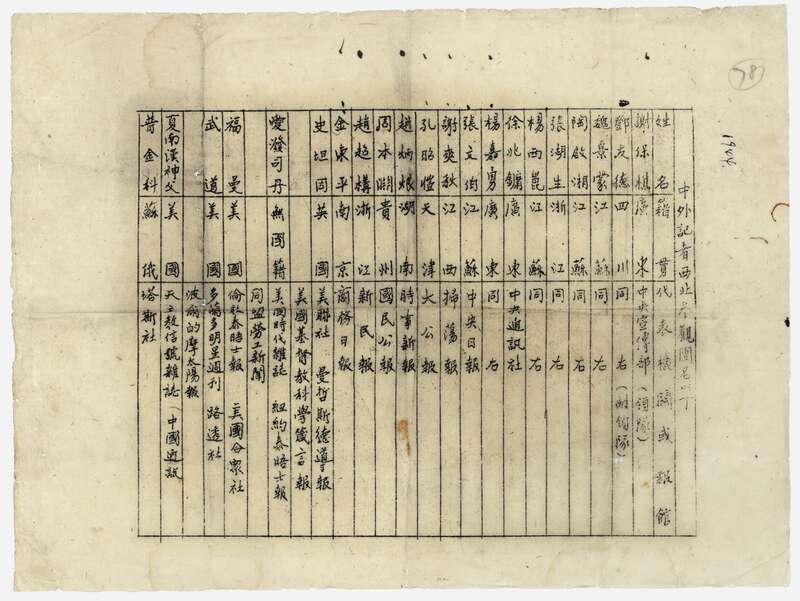 78
1944.
中外記者西北參觀團名單
姓名 籍貫 代表機關或報館
謝保樵 廣東 中央宣傳部（領隊）
鄧友德 四川 同右（副領隊）
魏景蒙 浙江 同右
陶啟湘 江蘇 同右
張湖生 浙江 同右
楊西崑 江蘇 同右
徐兆鏞 廣東 中央通訊社
楊嘉勇 廣東 同右
張文伯 江蘇 中央日報
謝爽秋 江西 掃蕩報
孔昭愷 天津 大公報
趙炳烺 湖南 時事新報
周本淵 貴州 國民公報
趙超構 浙江 新民報
金東平 南京 商務日報
史坦因 英國 美聯社 曼哲斯德導報
美國基督教科學箴言報
愛潑司丹 無國籍 美國時代雜誌 紐約泰晤士報
同盟勞工新聞
福曼 美國 倫敦泰晤士報 美國合眾社
武道 美國 多倫多明星週刊 路透社
波爾的摩太陽報
夏南漢神父 美國 天主教信號雜誌（中國通訊
普金科 蘇俄 塔斯社